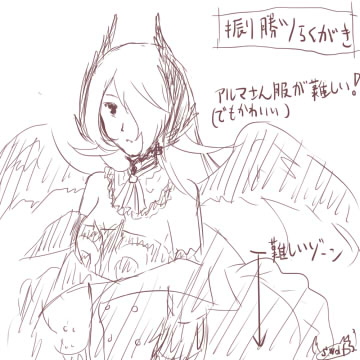 振り勝ツらくがき
アルマさん服が難しい!
(でもかわいい)
難しいゾーン